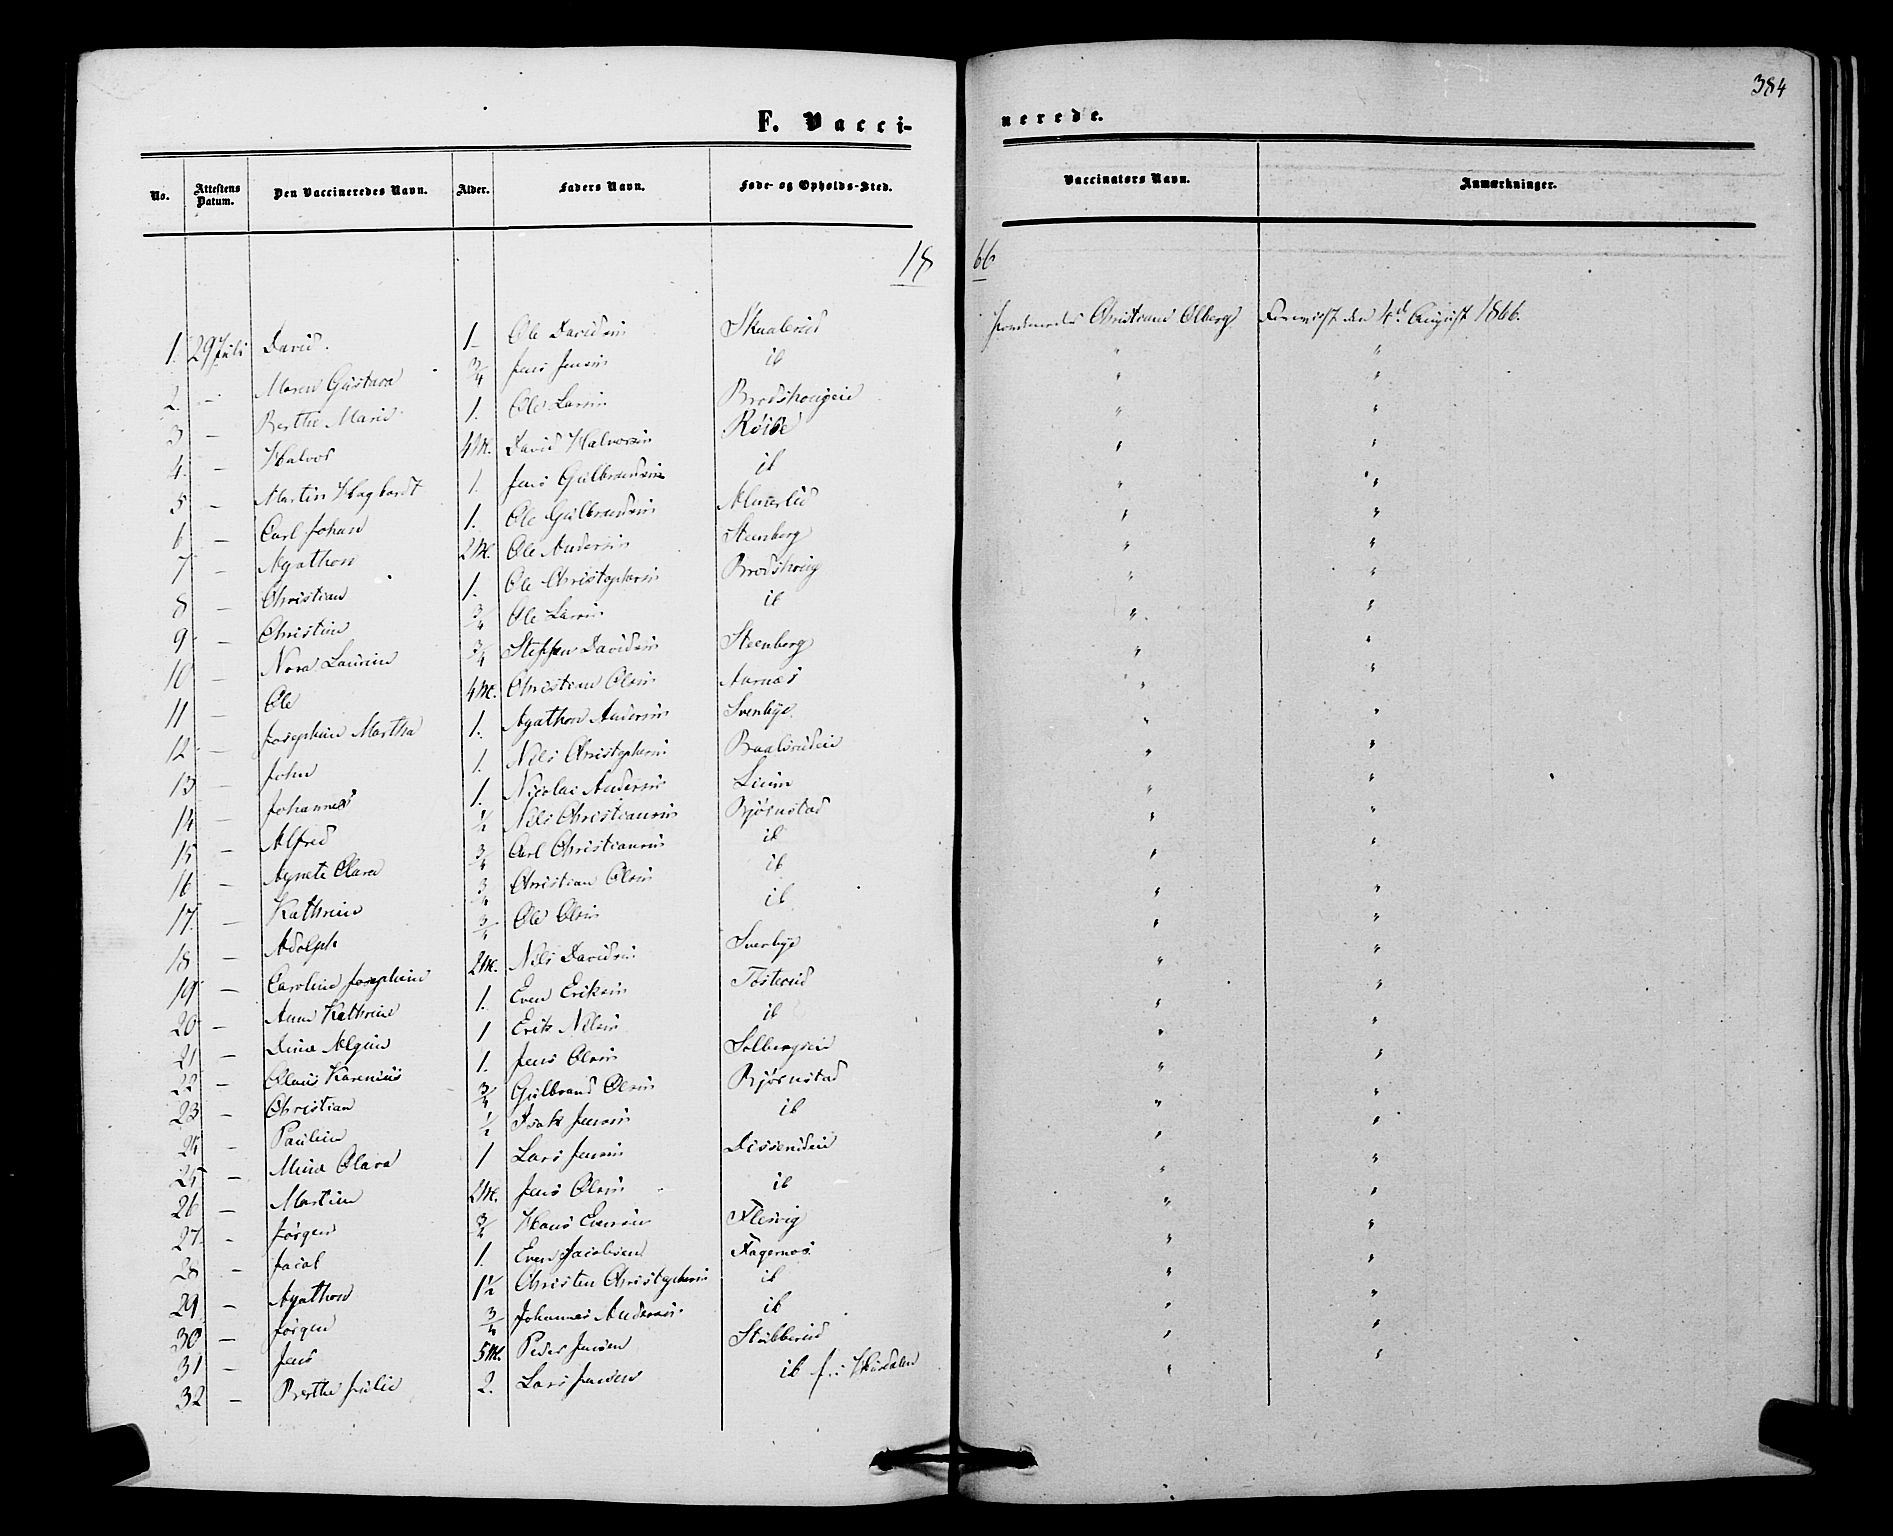 384
F. Vaccinerede.
No. Attestens Datum. Den Vaccineredes Navn. Alder. Faders Navn. Føde- og Opholds-Sted. Vaccinators Navn. Anmærkninger.
1866
1. 29 Juli David. 1 Ole Davidsen Skaalerud Christiane Olberg den 4de August 1866.
2. — Maren Gustava 3/4 Jens Jensen ib " "
3 — Berthe Marie 1. Ole Larsen Brodshougeie " "
4. — Halvor 4 M. David Halvorsen " "
5 — Martin Hagbardt 1. Jens Gulbrandsen ib " "
6 — Carl Johan 1. Ole Gulbrandsen " "
7 — Agathon 2 M. Ole Andersen Steenberg " "
8 — Christian 1. Ole Christophersen Brodshoug " "
9 — Christine 3/4 Ole Larsen ib " "
10 — Nora Laurine 3/4 Steffen Davidsen Steenberg " "
11 — Ole 4 M. Christian Olsen Aarnæs " "
12 — Josephine Martha 1. Agathon Andersen Svenbye " "
13 — John 1. Nils Christophersen Baalsrudeie " "
14 — Johannes 1. Nicolai Andersen " "
15 — Alfred 1/2 Nils Christiansen Bjørnstad " "
16 — Agnete Clara 3/4 Carl Christiansen ib " "
17. — Kathrine 3/4 Christian Olsen ib " "
18 — Adolph 3/4 Ole Olsen ib " "
19 — Caroline Josephine 2 M. Nils Davidsen Svenbye " "
20 — Anne Kathrine 1. Even Eriksen Tosterud " "
21 — Lina Algine 1 Erik Nilsen ib " "
22 — Olaus Karenius 1. Jens Olsen Solbergeie " "
23 — Christian 3/4 Gulbrand Olsen Bjørnstad " "
24 — Pauline 1/2 Isak Jensen ib " "
25 — Mina Clara 1 Lars Jensen " "
26 — Martin 2 M. Jens Olsen ib " "
27. — Jørgen 3/4 Hans Evensen Flesvig " "
28 — Jacob 1. Even Jacobsen Fagernæs " "
29 — Agathon 1 1/2 Christen Christophersen ib " "
30 — Jørgen 3/4 Johannes Andersen ib " "
31 — Jens 5 M. Peder Jensen Stubberud " "
32 — Berthe Julie 2. Lars Jensen ib "